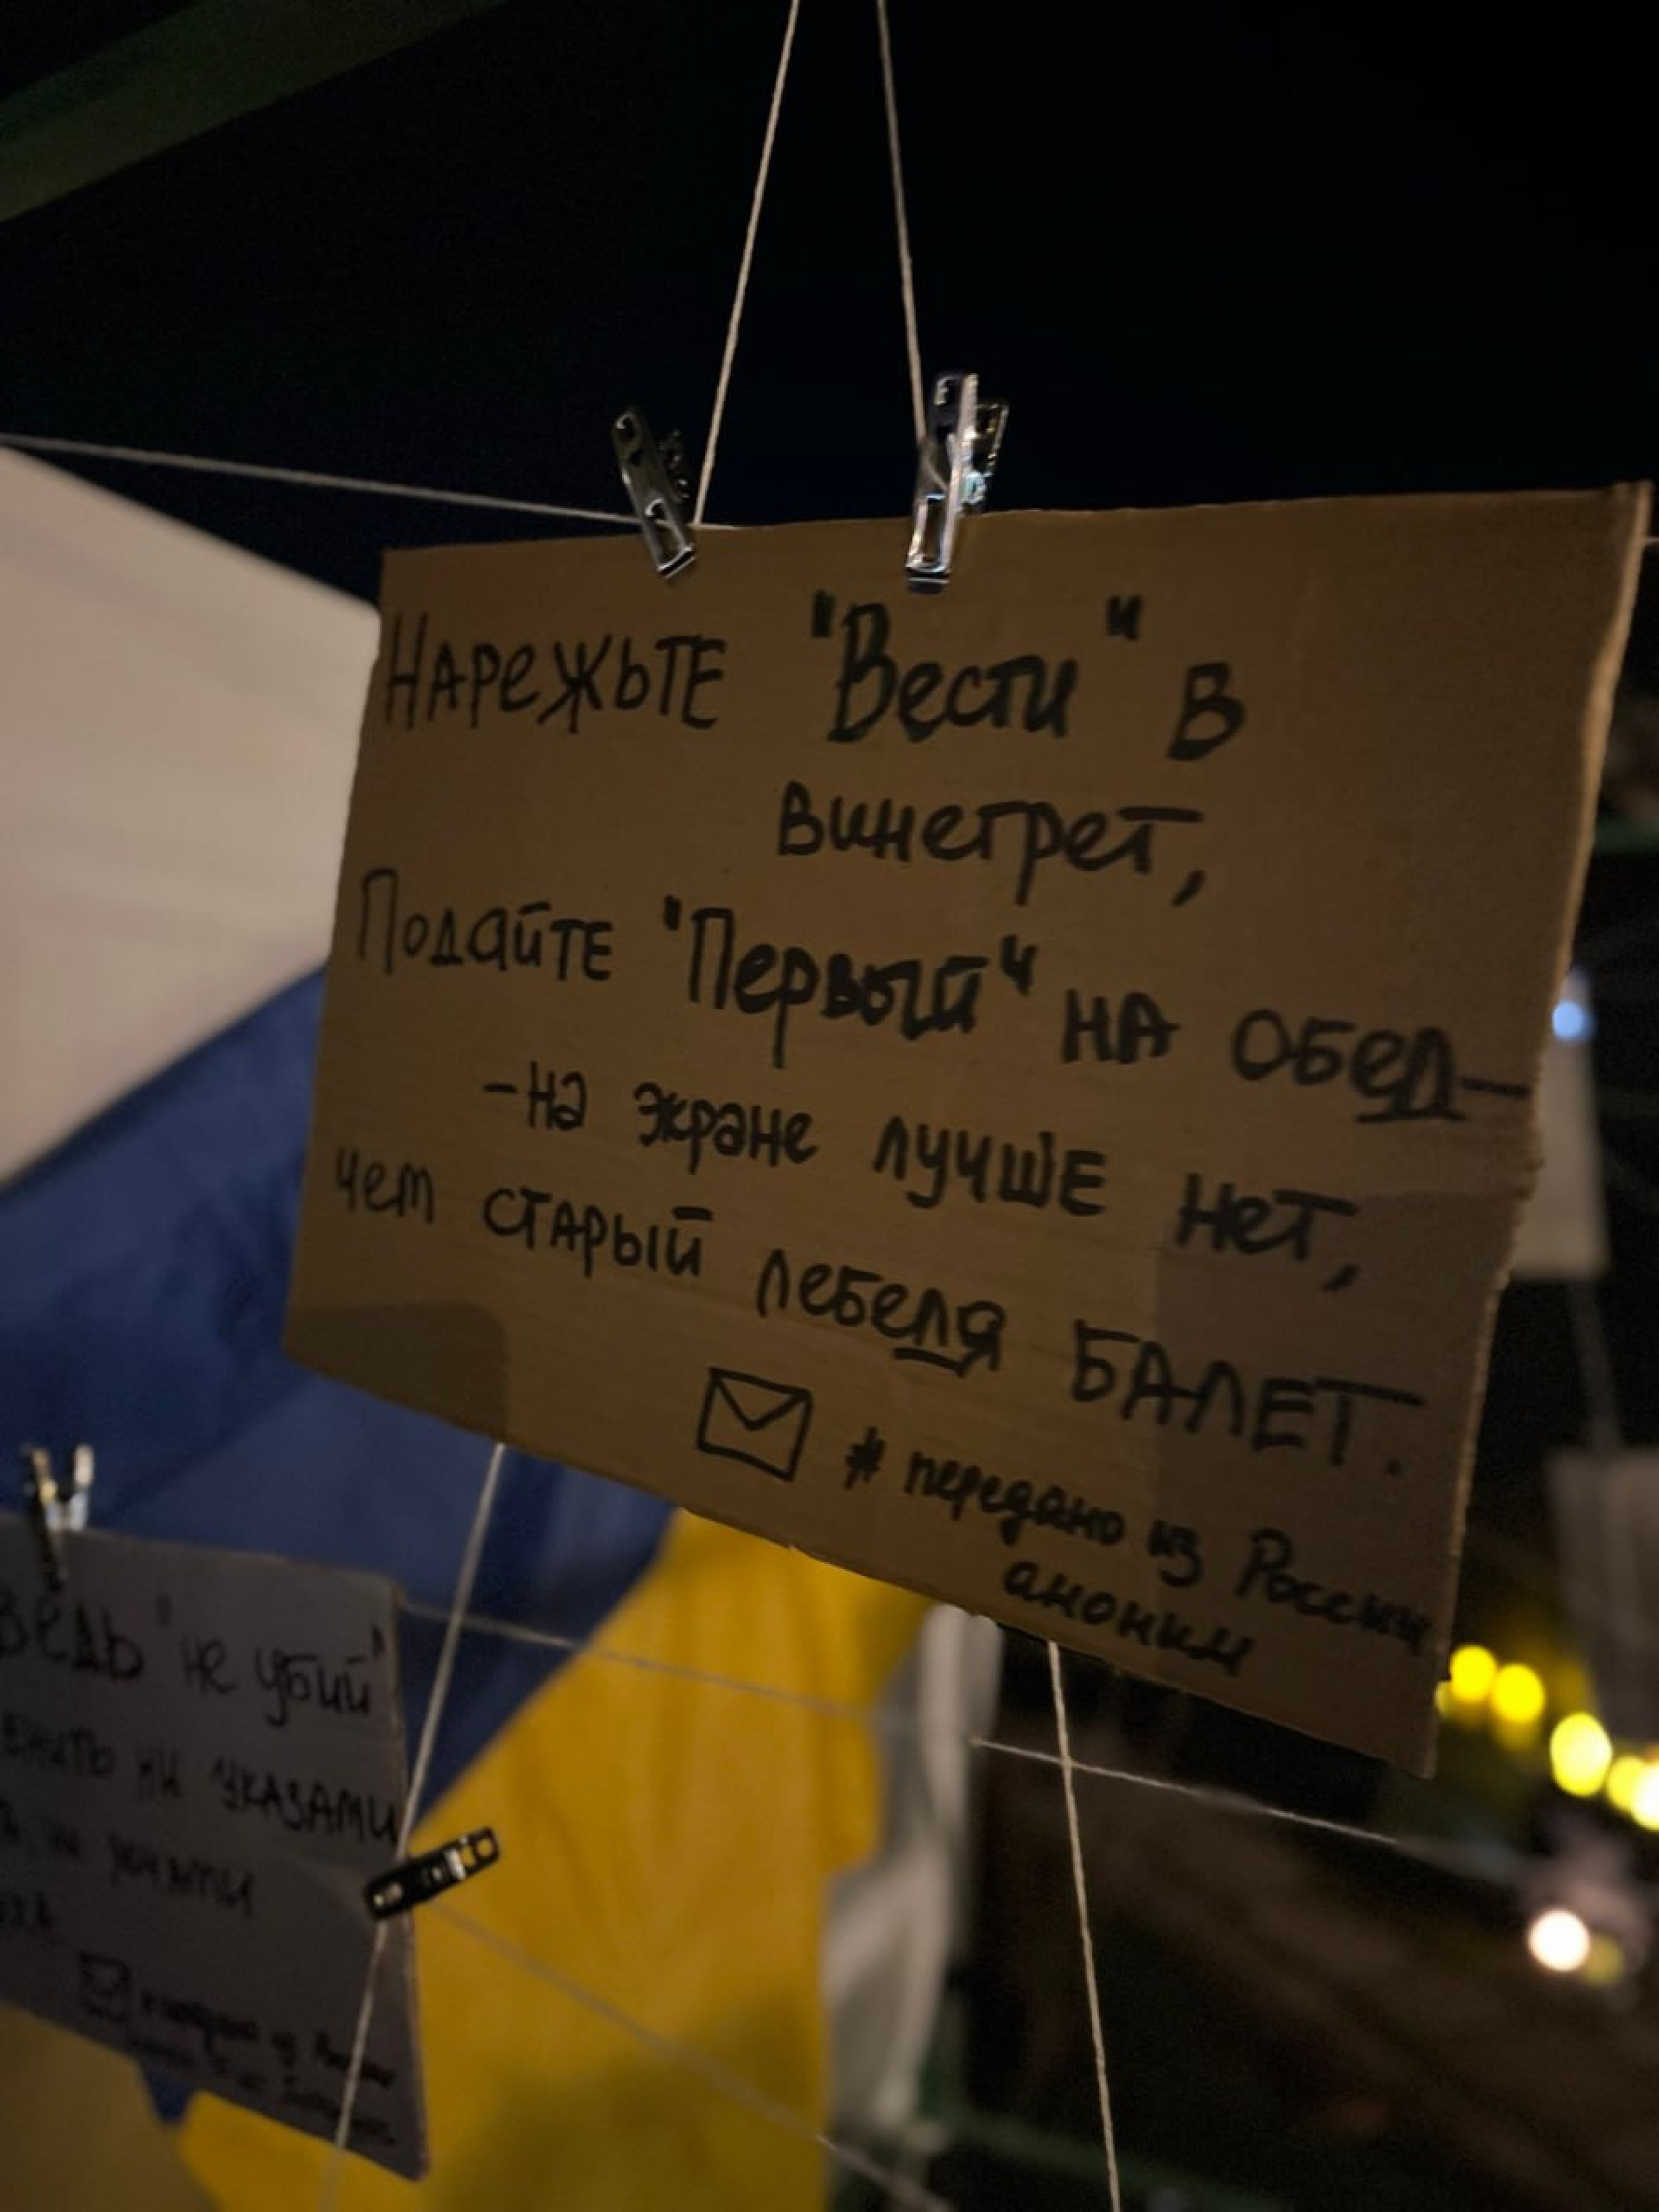 Нарежьте "Вести" в
винегрет,
Подайте "Первый" на обед—
-на экране лучше нет,
чем старый лебедя БАЛЕТ.
# передано из России
аноним
ведь "не убий"
ни указами